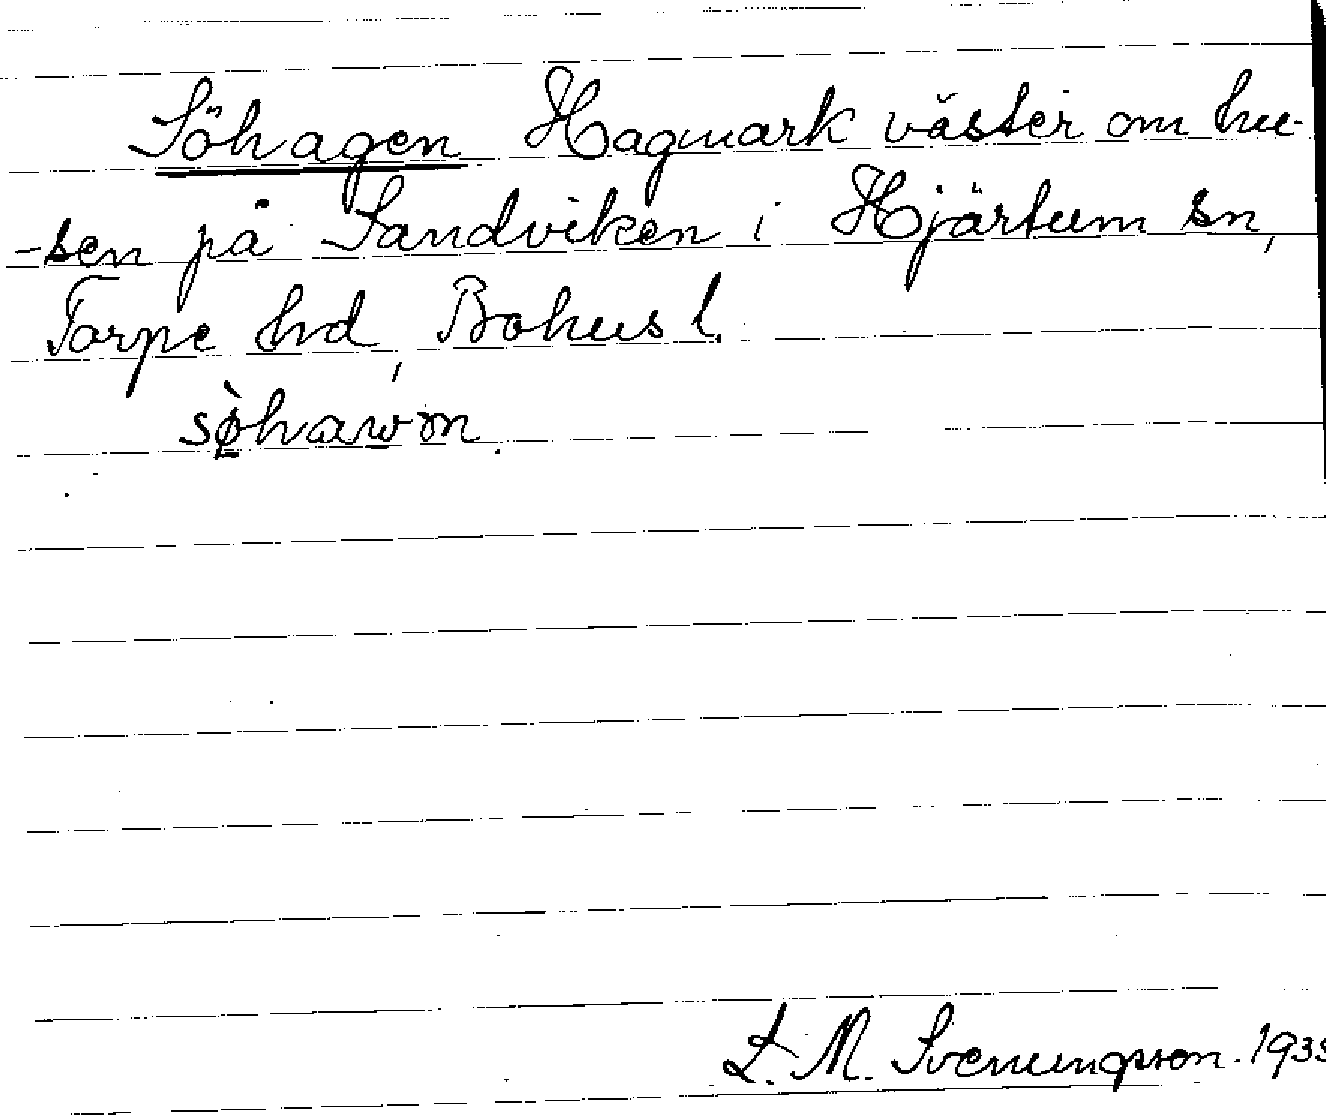 Söhagen Hagmark väster om hu-
-sen på Sandviken i Hjärtum sn,
Torpe hd, Bohusl.
L. M. Svenungsson. 1933